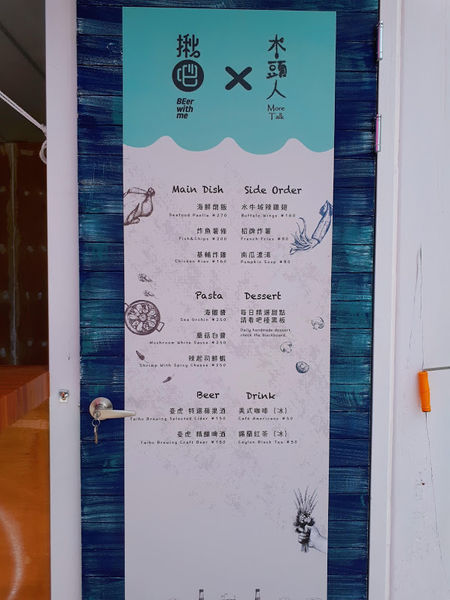 揪吧
BEer
with
me
木頭人
More
Talk
Main Dish
海鮮燉飯
Seafood Paella ¥270
炸魚薯條
Fish&Chips ¥200
基輔炸雞
Chicken Kiev ¥160
Side Order
水牛城辣雞翅
Buffalo Wings ¥160
招牌炸薯
French Fries ¥80
南瓜濃湯
Pumpkin Soup ¥80
Pasta
海膽醬
Sea Urchin ¥250
蘑菇白醬
Mushroom White Sauce ¥200
辣起司鮮蝦
Shrimp With Spicy Cheese ¥250
Dessert
每日精選甜點
請看吧檯黑板
Daily handmade dessert,
check the blackboard.
Beer
臺虎 特選蘋果酒
Taihu Brewing Selected Cider ¥150
臺虎 精釀啤酒
Taihu Brewing Craft Beer ¥150
Drink
美式咖啡（冰）
Café Americano ¥50
錫蘭紅茶（冰）
Ceylon Black Tea ¥50